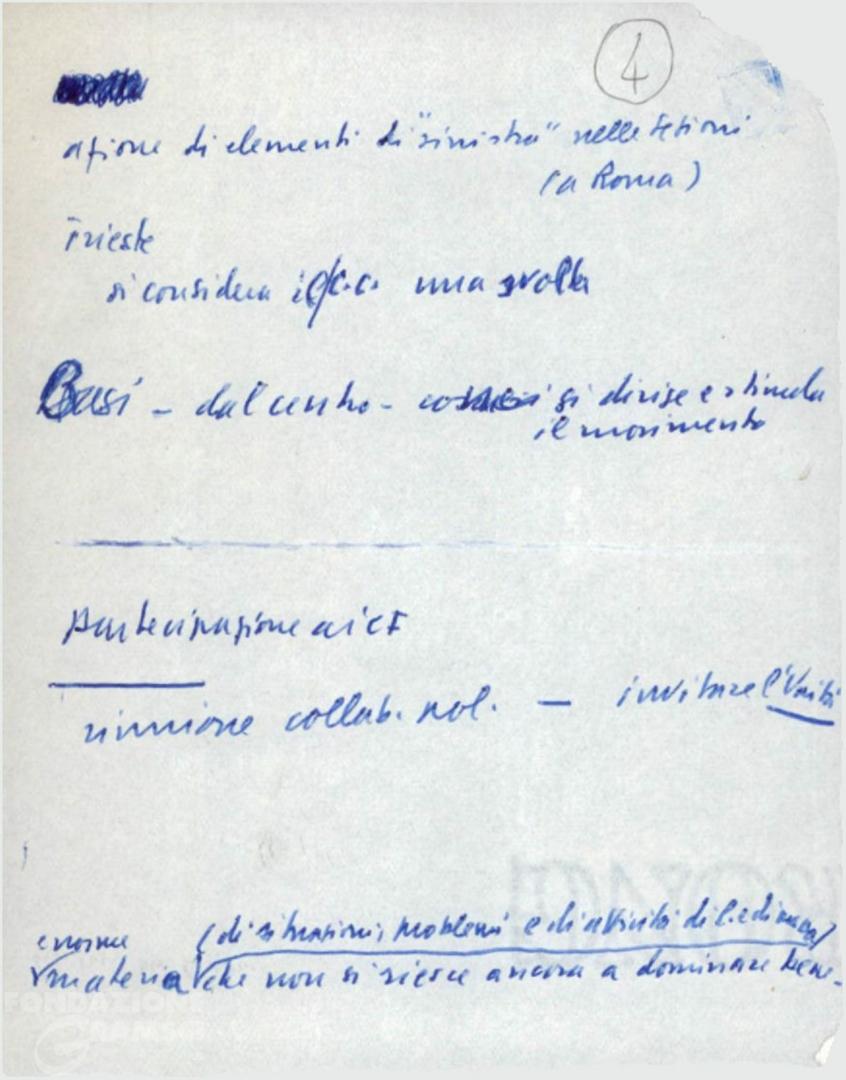 4
azione di elementi di "sinistra" nelle sezioni
(a Roma)
Trieste
si considera il C.C. una svolta
Basi - dal centro - si dirige e stimola
il movimento
Partecipazione ai CF
riunione collab. pol. — invitare l'Unità
enorme (di situazioni, problemi e di attività di
materia che non si riesce ancora a dominare bene.
FONDAZIONE
GRAMSCI